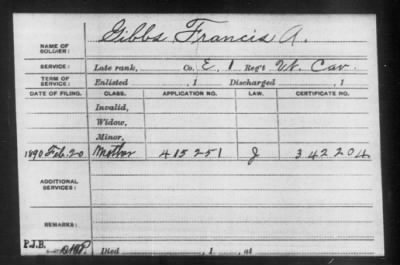 NAME OF SOLDIER: Gibbs Francis A.
SERVICE: Late rank, Co. E. 1 Reg't Vt. Cav.
TERM OF SERVICE: Enlisted , 1 Discharged , 1
DATE OF FILING. CLASS. APPLICATION NO. LAW. CERTIFICATE NO.
Invalid,
Widow,
Minor,
1890 Feb. 20 Mother 415251 J 342204
ADDITIONAL SERVICES:
REMARKS:
P.J.B.
Died , 1 , at